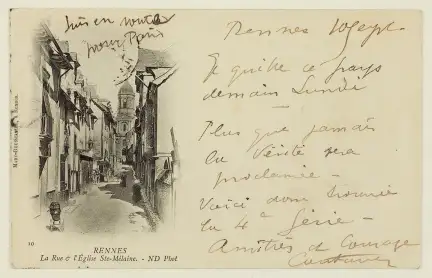 Suis en route
pour Paris
Rennes 10 Sept
Je quitte ce pays
demain Lundi
Plus que jamais
la Vérité sera
proclamée -
Voici donc terminée
la 4e Série -
Amitiés et Courage
10
RENNES
La Rue & l'Église Ste-Mélaine. - ND Phot